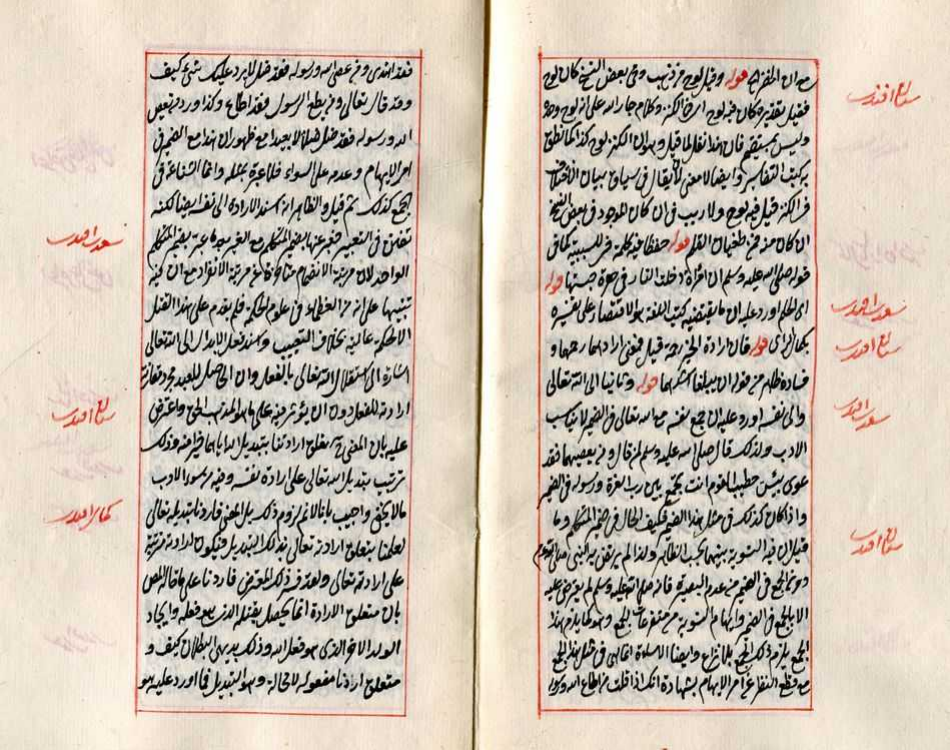 مع ان المفرح قوله وقيل لوح من ذهب وفي بعض النسخ كان لوح
فقيل تقديره كان فيه لوح اي في الكنز وكلام جار الله على انه لوح وحده
وليس بمستقيم فان هذا نقل لما قيل وهو ان الكنز لوح كذا
به كتب التفاسير وايضا لا معنى لان يقال في سياق بيان الاختلاف
في الكنز قيل فيه لوح ولا ريب في ان كان الموجود في بعض النسخ
ان كان من طغيان القلم قوله حفظا فى للسببية كما في
قوله صلى الله عليه وسلم ان امرأة دخلت النار في هرة حبستها قوله
اى الحلم اورد عليه ان ما يقتضيه كتب اللغة هو الاقتصار على تفسيره
بكمال الرأى قوله فان ارادة الخ قيل فمعنى ارادهما رحمهما و
فساده ظاهر من قوله ان يبلغا اشدهما قوله وثانيا الى الله تعالى
والى نفسه اورد عليه ان جمع نفسه مع الله تعالى في الضمير لا يناسب
الادب ولذلك قال صلى الله عليه وسلم لمن قال ومن يعصيهما فقد
غوى بئس خطيب القوم انت يجمع بين رب العزة ورسوله في الضمير
واذا كان كذلك في مثل هذا الضمير فكيف الحال في ضمير المتكلم وما
قيل ان فيه التسوية بينهما بحسب الظاهر ولذا لم يرتض به النبي صلى الله عليه وسلم
دون الجمع في الضمير من عدم التبعية فانه صلى الله عليه وسلم لم يعترض عليه
الا بالجمع في الضمير وايهام التسوية من متفرعات الجمع وهو كما يلزم هذا
الجمع يلزم ذلك الجمع بلا نزاع وايضا الاساءة انما هي في مثل هذا الجمع
مع قطع النظر عن امر الابهام بشهادة انك اذا قلت من اطاع الله ورسوله
سعدى افندى
سعدى افندى
فقد اهتدى ومن عصى الله ورسوله فقد ضل لا يرد عليك شئ كيف
وقد قال تعالى ومن يطع الرسول فقد اطاع وكذا ورد من يعص
الله ورسوله فقد ضل ضلالا بعيدا مع ظهور ان هذا مع الضمير في
امر الايهام وعدمه على السواء فلا عبرة بمثله وانما الشناعة في
الجمع كذلك ثم قيل والظاهر انه اسند الارادة الى نفسه ايضا لكنه
تفنن في التعبير فعبر عنها بضمير المتكلم مع الغير بعد ما عبر بضمير المتكلم
الواحد لان مرتبة الانضمام متأخرة عن مرتبة الانفراد مع ان فيه
تنبيها على انه من العظماء في علوم الحكمة فلم يقدم على هذا القتل
الا لحكمة عالية بخلاف التعييب واسند فعل الابدال الى الله تعالى
اشارة الى استقلال الله تعالى بالفعل وان الحاصل للعبد مجرد مقارنة
ارادته للفعل دون ان يؤثر فيه على ما هو المذهب الحق واعترض
عليه بان المعنى ح تعلق ارادتنا بتبديل الله اياهما خيرا منه وذلك
ترتيب تبديل الله تعالى على ارادة نفسه وفيه من سوء الادب
ما لا يخفى واجيب بانا لا نم لزوم ذلك بل المعنى فاردنا تبديله تعالى
لعلمنا بتعلق ارادته تعالى بذلك التبديل فيكون ارادته مرتبة
على ارادته تعالى فاردنا على ما قاله المص
بان متعلق الارادة انما يحصل بقتله الذى هو فعله وايجاد
الولد الاخر الذى هو فعل الله وذلك بديهى البطلان كيف و
متعلق اردنا مفعوله لا محالة وهو التبديل فما اورد عليه هو
سعدى افندى